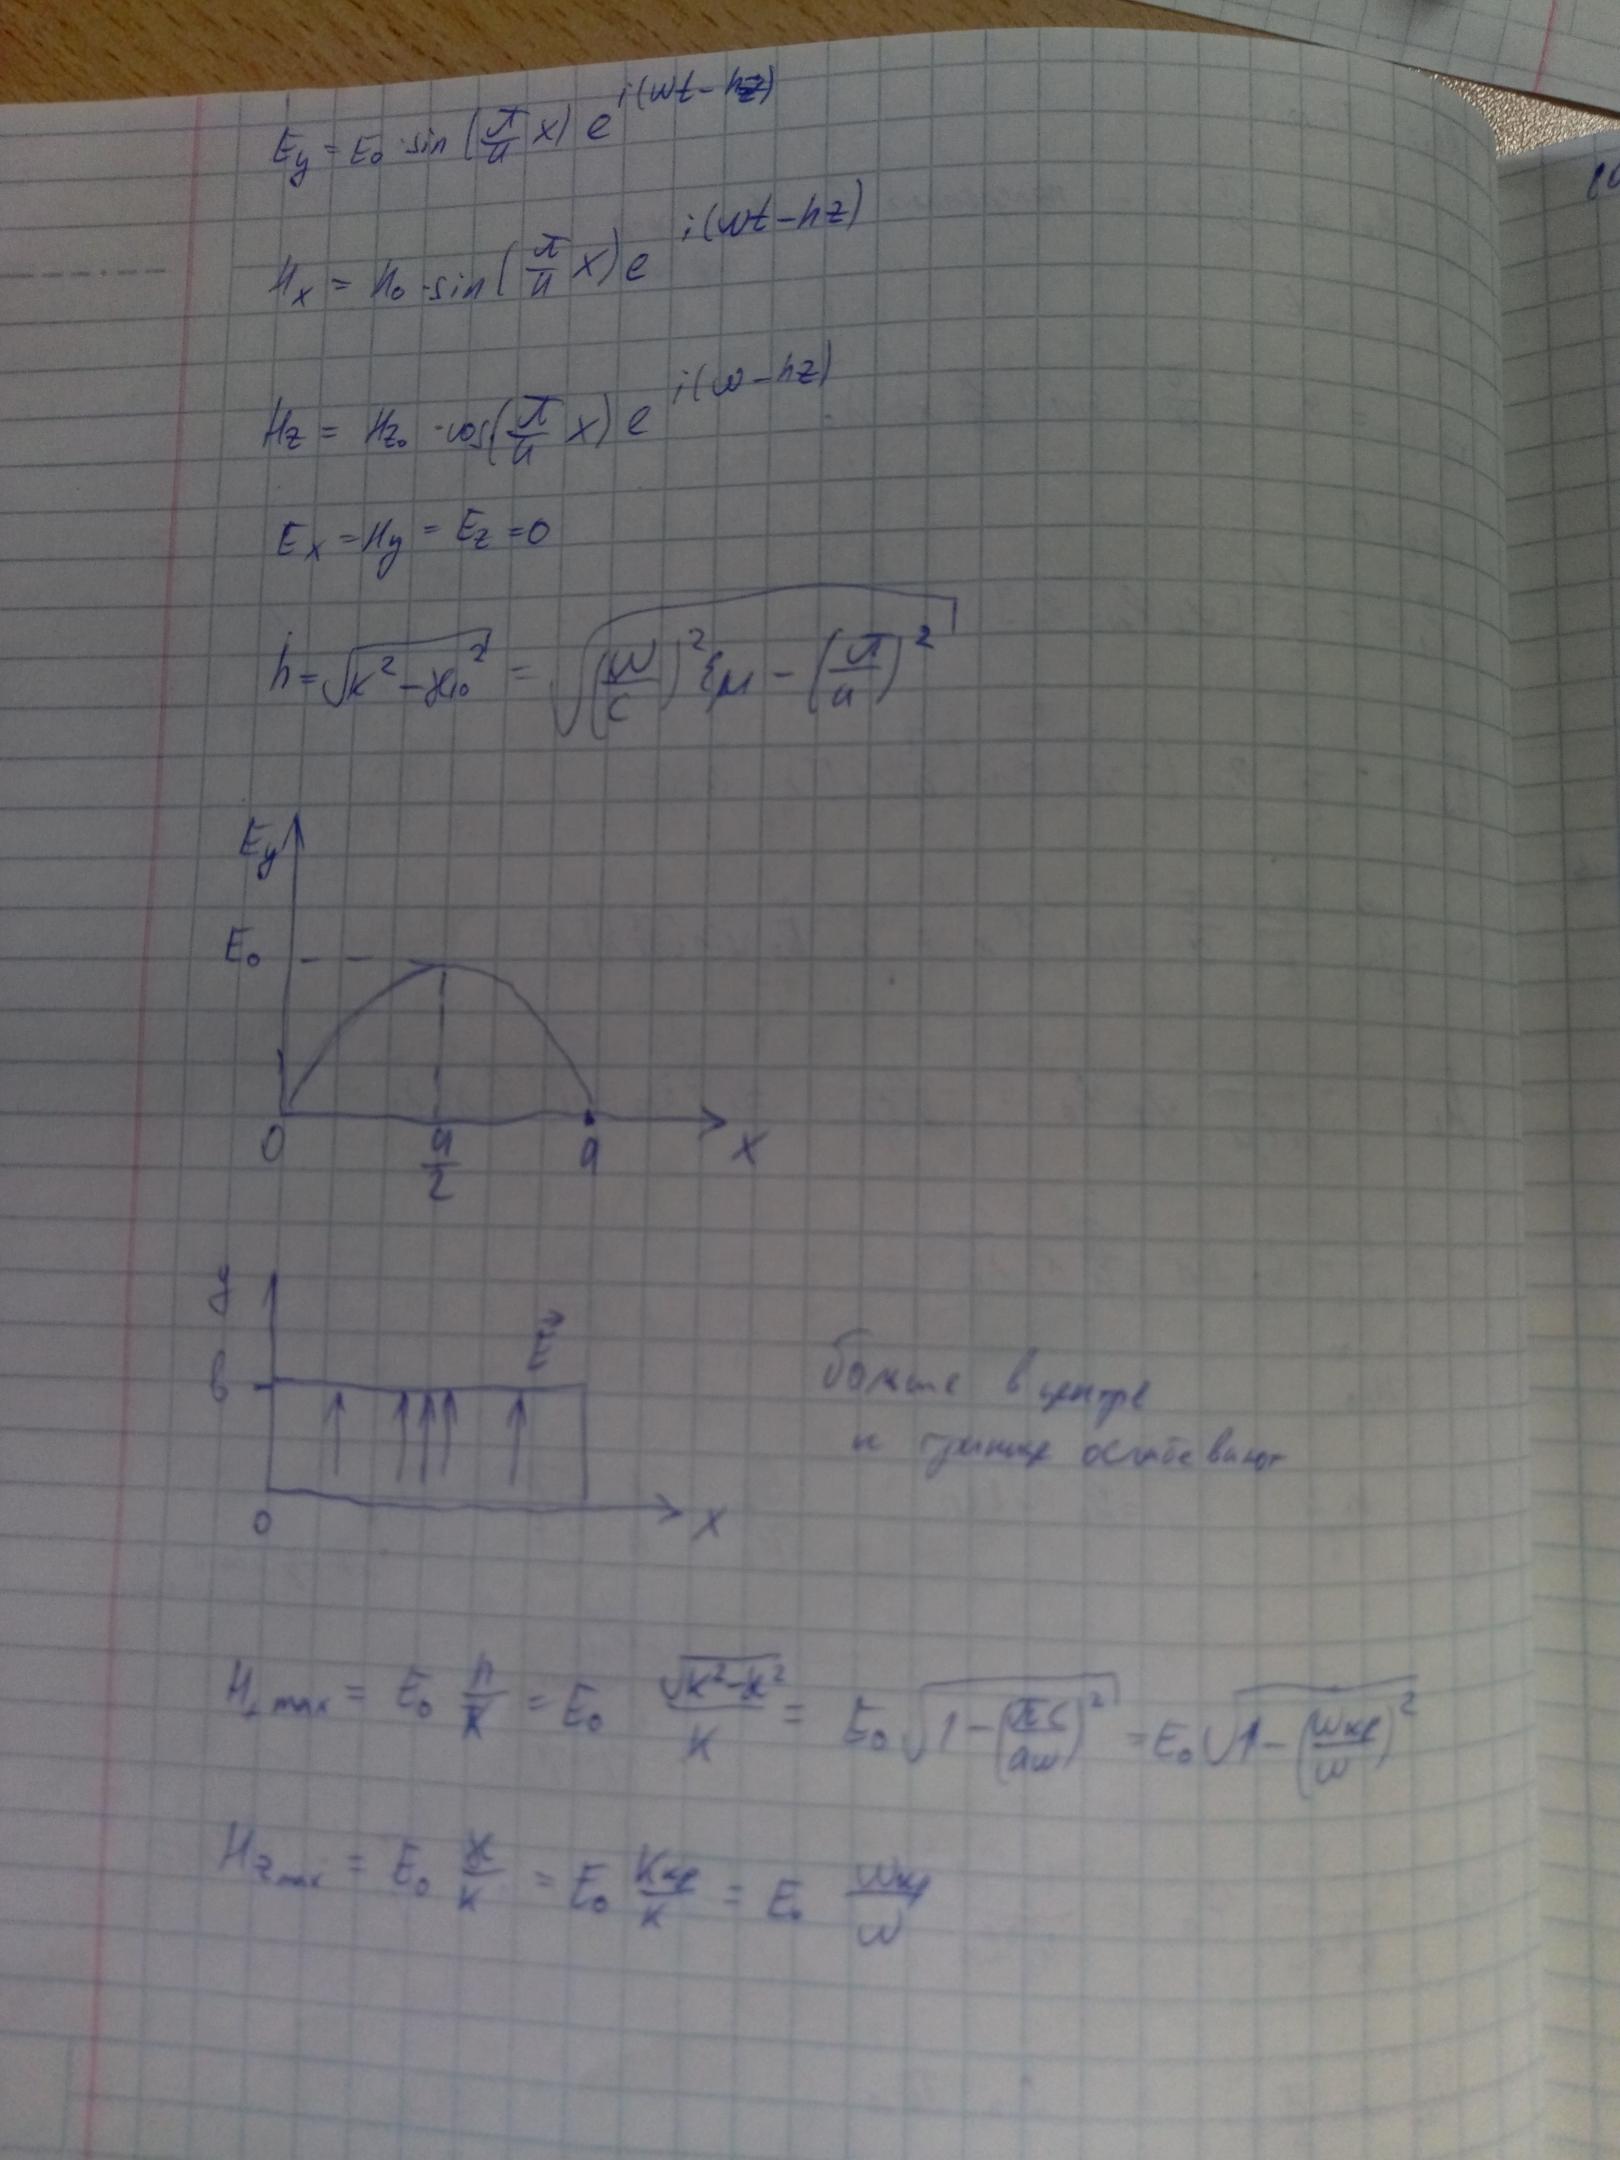 E_y = E_0 · sin(π/a x) e^{i(ωt - hz)}
H_x = H_0 · sin(π/a x) e^{i(ωt - hz)}
H_z = H_{z0} · cos(π/a x) e^{i(ω - hz)}
E_x = H_y = E_z = 0
h = √(k² - ϰ_{10}²) = √((ω/c)² εμ - (π/a)²)
E_y
E_0
0 a/2 a x
y
E⃗
b
больше в центре
к границе ослабевают
0 x
H_{⊥max} = E_0 h/k = E_0 √(k² - ϰ²)/k = E_0 √(1 - (πc/aω)²) = E_0 √(1 - (ω_{кр}/ω)²)
H_{z max} = E_0 ϰ/k = E_0 k_{кр}/k = E_0 ω_{кр}/ω